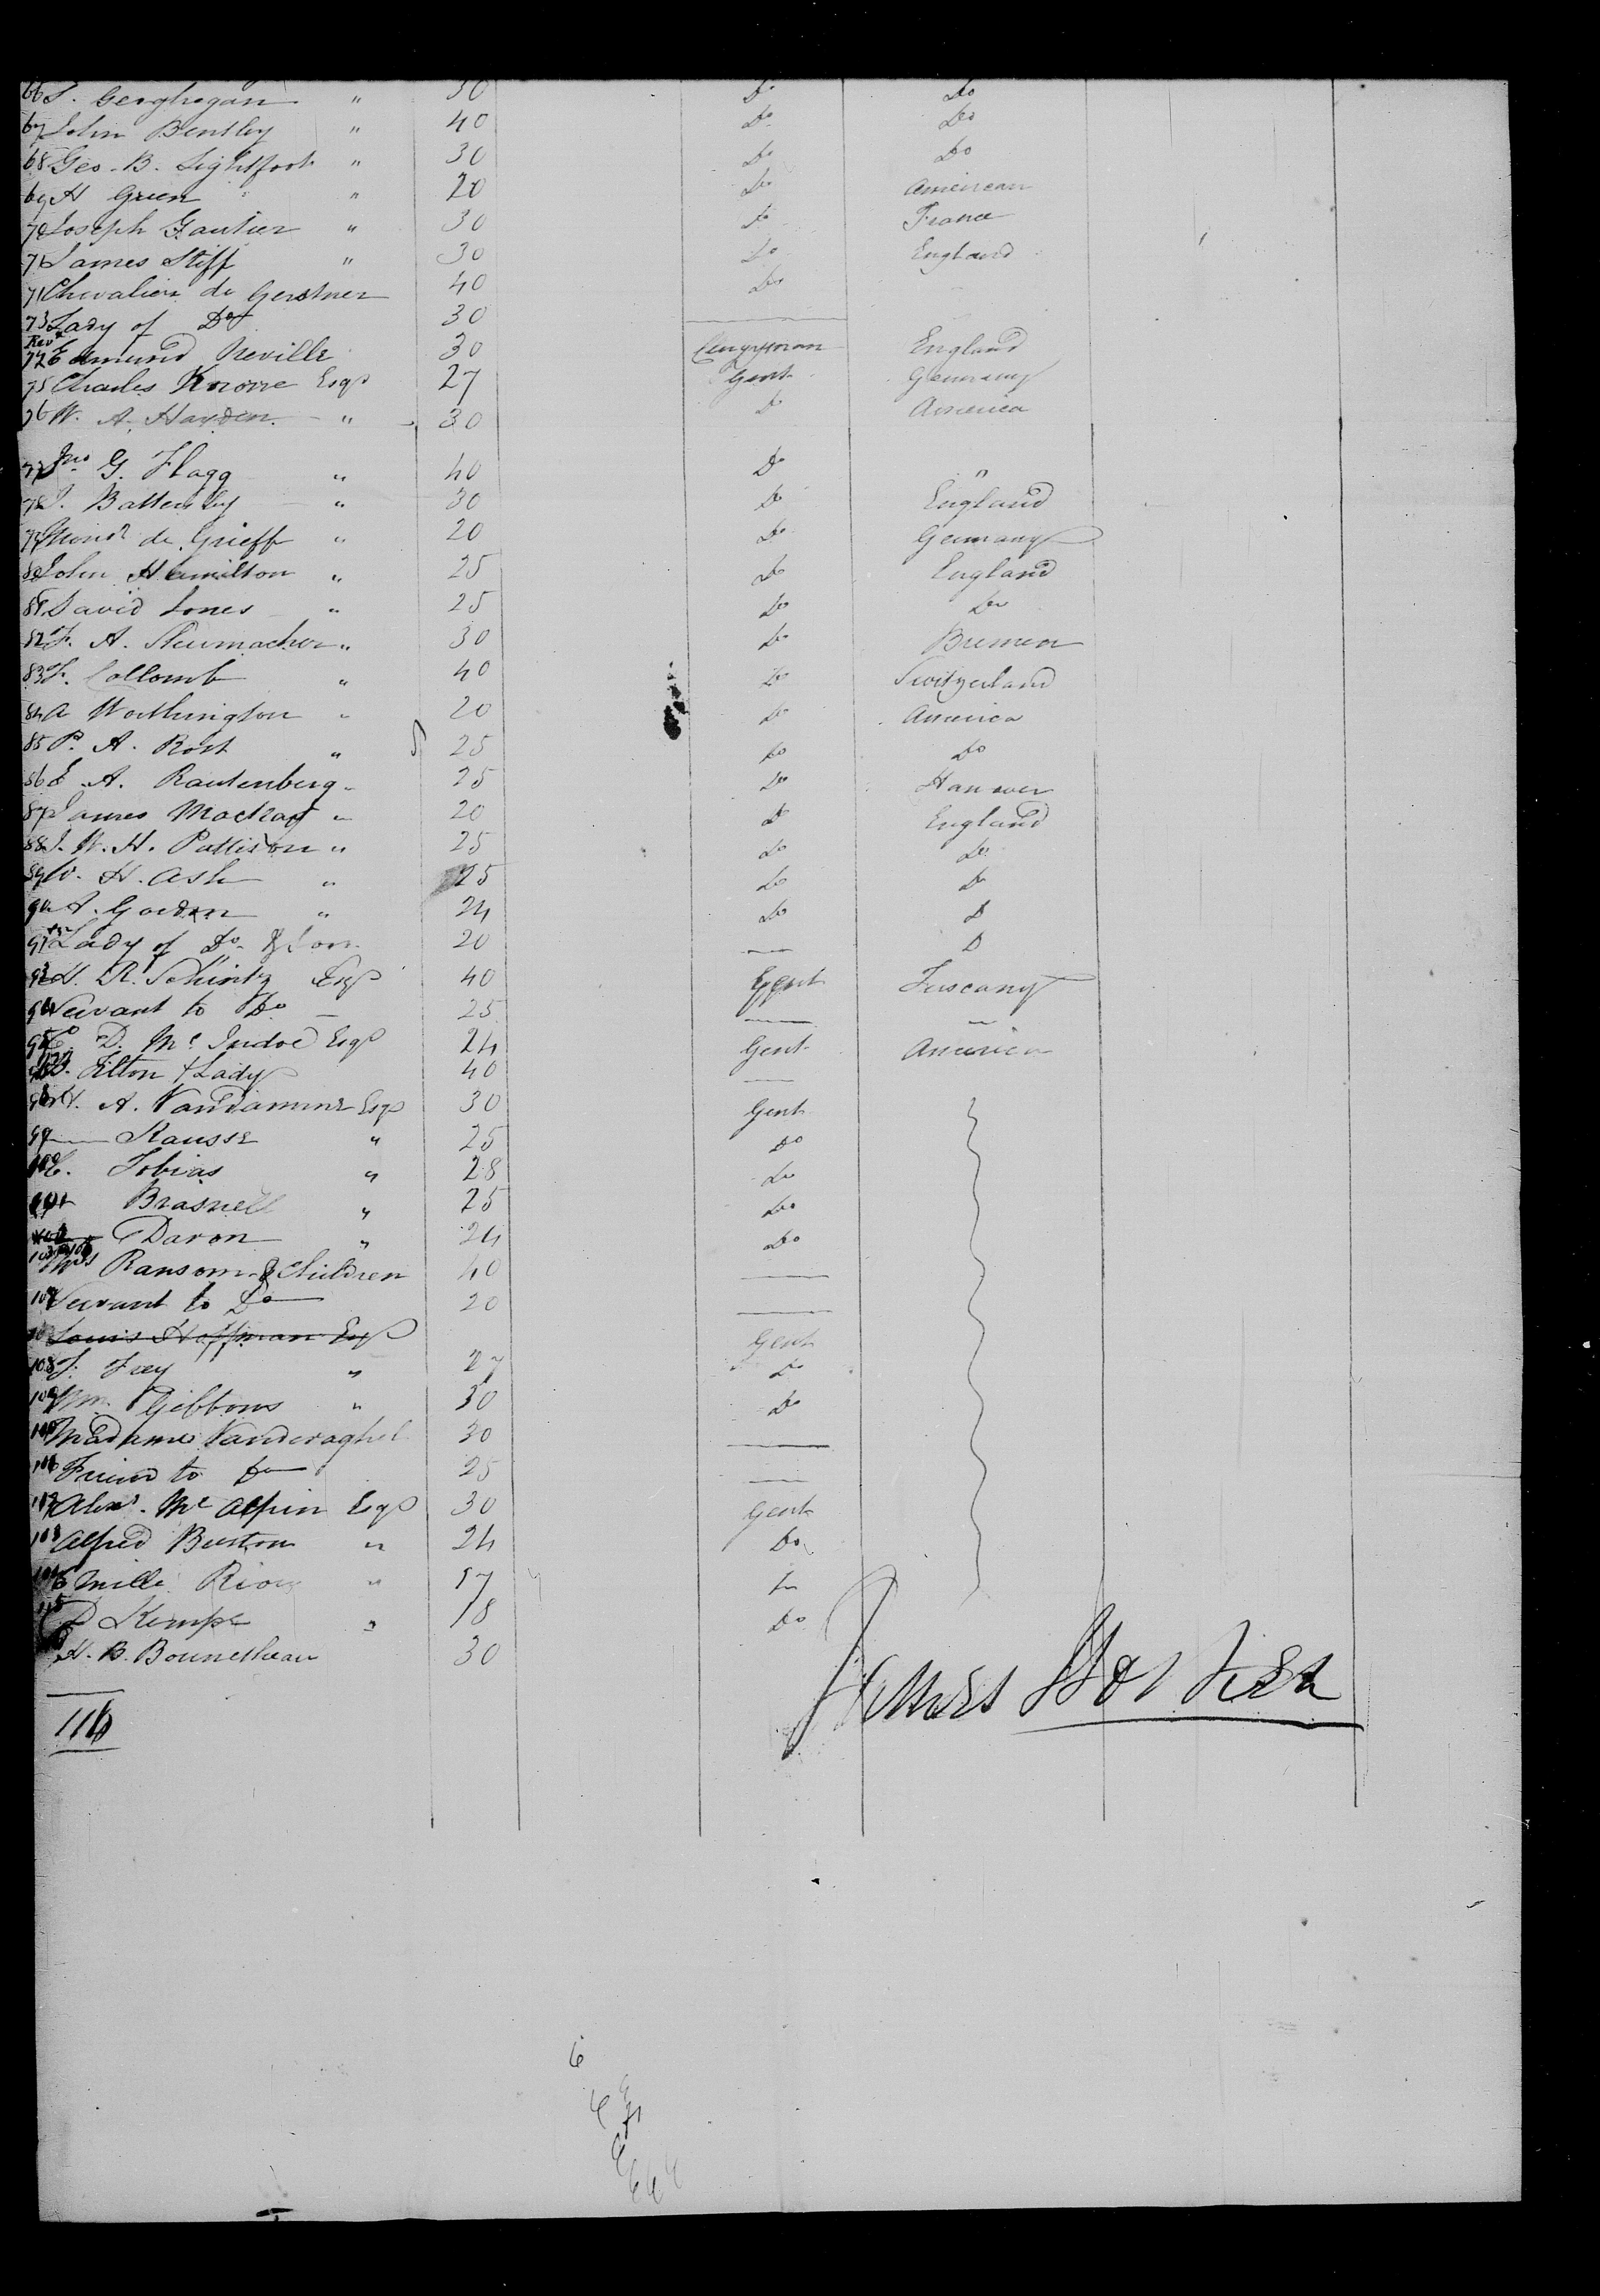 66 S. Geoghegan " 30 Do Do
67 John Bentley " 40 Do Do
68 Geo. B. Lightfoot " 30 Do Do
69 H Green " 20 Do American
70 Joseph Gautier " 30 Do France
71 James Stiff " 30 Do England
71 Chevalier de Gerstner 40 Do
73 Lady of Do 30
Revd
74 Edmund Neville 30 Clergyman England
75 Charles Knorre Esqr 27 Gent Germany
76 W. A. Hayden " 30 Do America
77 Jno G. Flagg " 40 Do "
78 J. Battersby " 30 Do England
79 Monsr de Grieff " 20 Do Germany
80 John Hamilton " 25 Do England
81 David Jones " 25 Do Do
82 F. A. " 30 Do Bremen
83 F. Collomb " 40 Do Switzerland
84 A Worthington " 20 Do America
85 P. A. Rost " 25 Do Do
86 E A. Rautenberg " 25 Do Hanover
87 James Mackay " 20 Do England
88 J. W. H. Pattison " 25 Do Do
89 W. H. Ash " 25 Do Do
90 A. Gordon " 24 Do D
91 Lady of Do & Son 20 D
93 H. R. Schintz Esqr 40 Gent Tuscany
94 Servant to Do 25
95 C. D. Mc Indoe Esqr 24 Gent America
B. Tilton & Lady 40
98 H. A. Vandamme Esqr 30 Gent
99 Rausse " 25 Do
100 C. Tobias " 28 Do
101 Brasnell " 25 Do
Davon " 24 Do
Mrs Ransom & Children 40
107 Servant to Do 20
Louis Hoffman Esqr Gent
108 J. Frey " 27 Do
109 Wm Gibbons " 30 Do
110 Madame Vanderaghel 30
111 Friend to Do 25
112 Alexr. Mc Alpin Esqr 30 Gent
113 Alfred Burton " 24 Do
114 Emille " 17 Do
115 D Kempe " 18 Do
H. B. Bounetheau 30
116
James Hosken